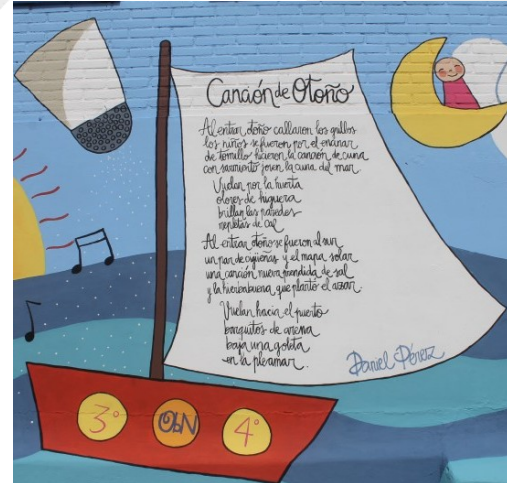 Canción de Otoño
Al entrar otoño callaron los grillos
los niños se fueron por el encinar
de tomillo hicieron la canción de cuna
con sarmiento joven la cuna del mar.
Vuelan por la huerta
olores de higuera
brillan las paredes
repletas de cal
Al entrar otoño se fueron al sur
un par de cigüeñas y el mapa solar
una canción nueva prendida de sal
y la hierbabuena que plantó el azar.
Vuelan hacia el puerto
barquitos de arena
baja una goleta
en la pleamar.
Daniel Pérez
3º ObN 4º